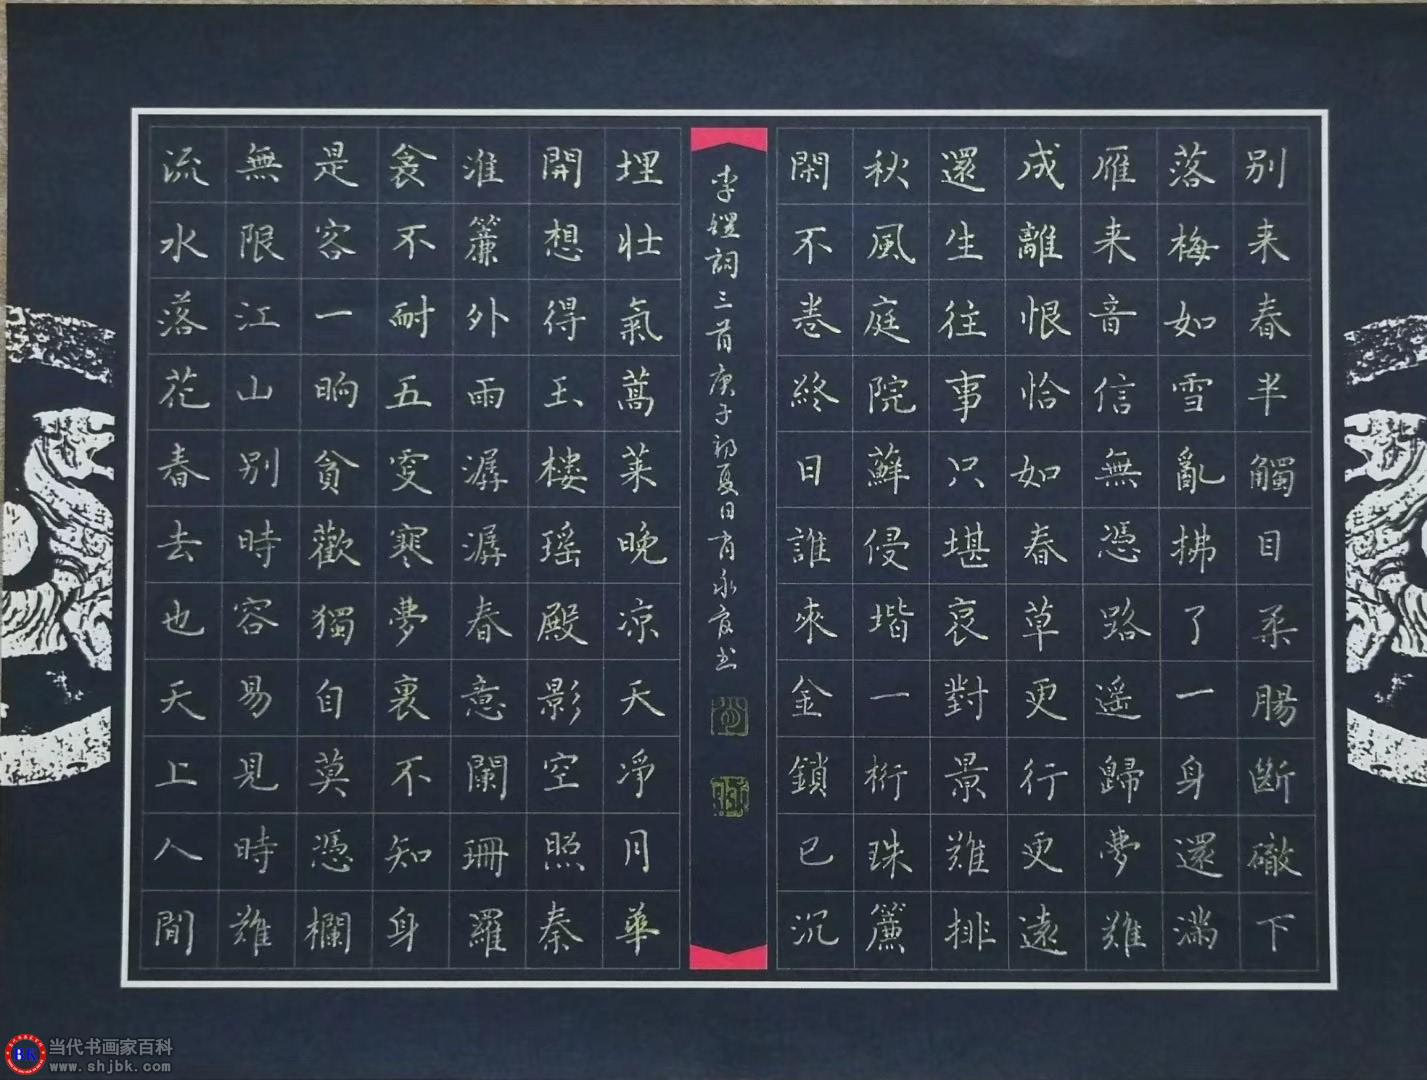 别来春半觸目柔腸斷𥕐下
落梅如雪亂拂了一身還滿
雁来音信無憑路遥歸夢難
成離恨恰如春草更行更遠
還生往事只堪哀對景難排
秋風庭院蘚侵堦一桁珠簾
閑不卷終日誰來金鎖已沉
李煜詞三首庚子初夏日肖永庆书
埋壯氣蒿萊晚凉天净月華
開想得玉樓瑶殿影空照秦
淮簾外雨潺潺春意闌珊羅
衾不耐五更寒夢裏不知身
是客一晌貪歡獨自莫憑欄
無限江山别時容易見時難
流水落花春去也天上人間
当代书画家百科
www.shjbk.com